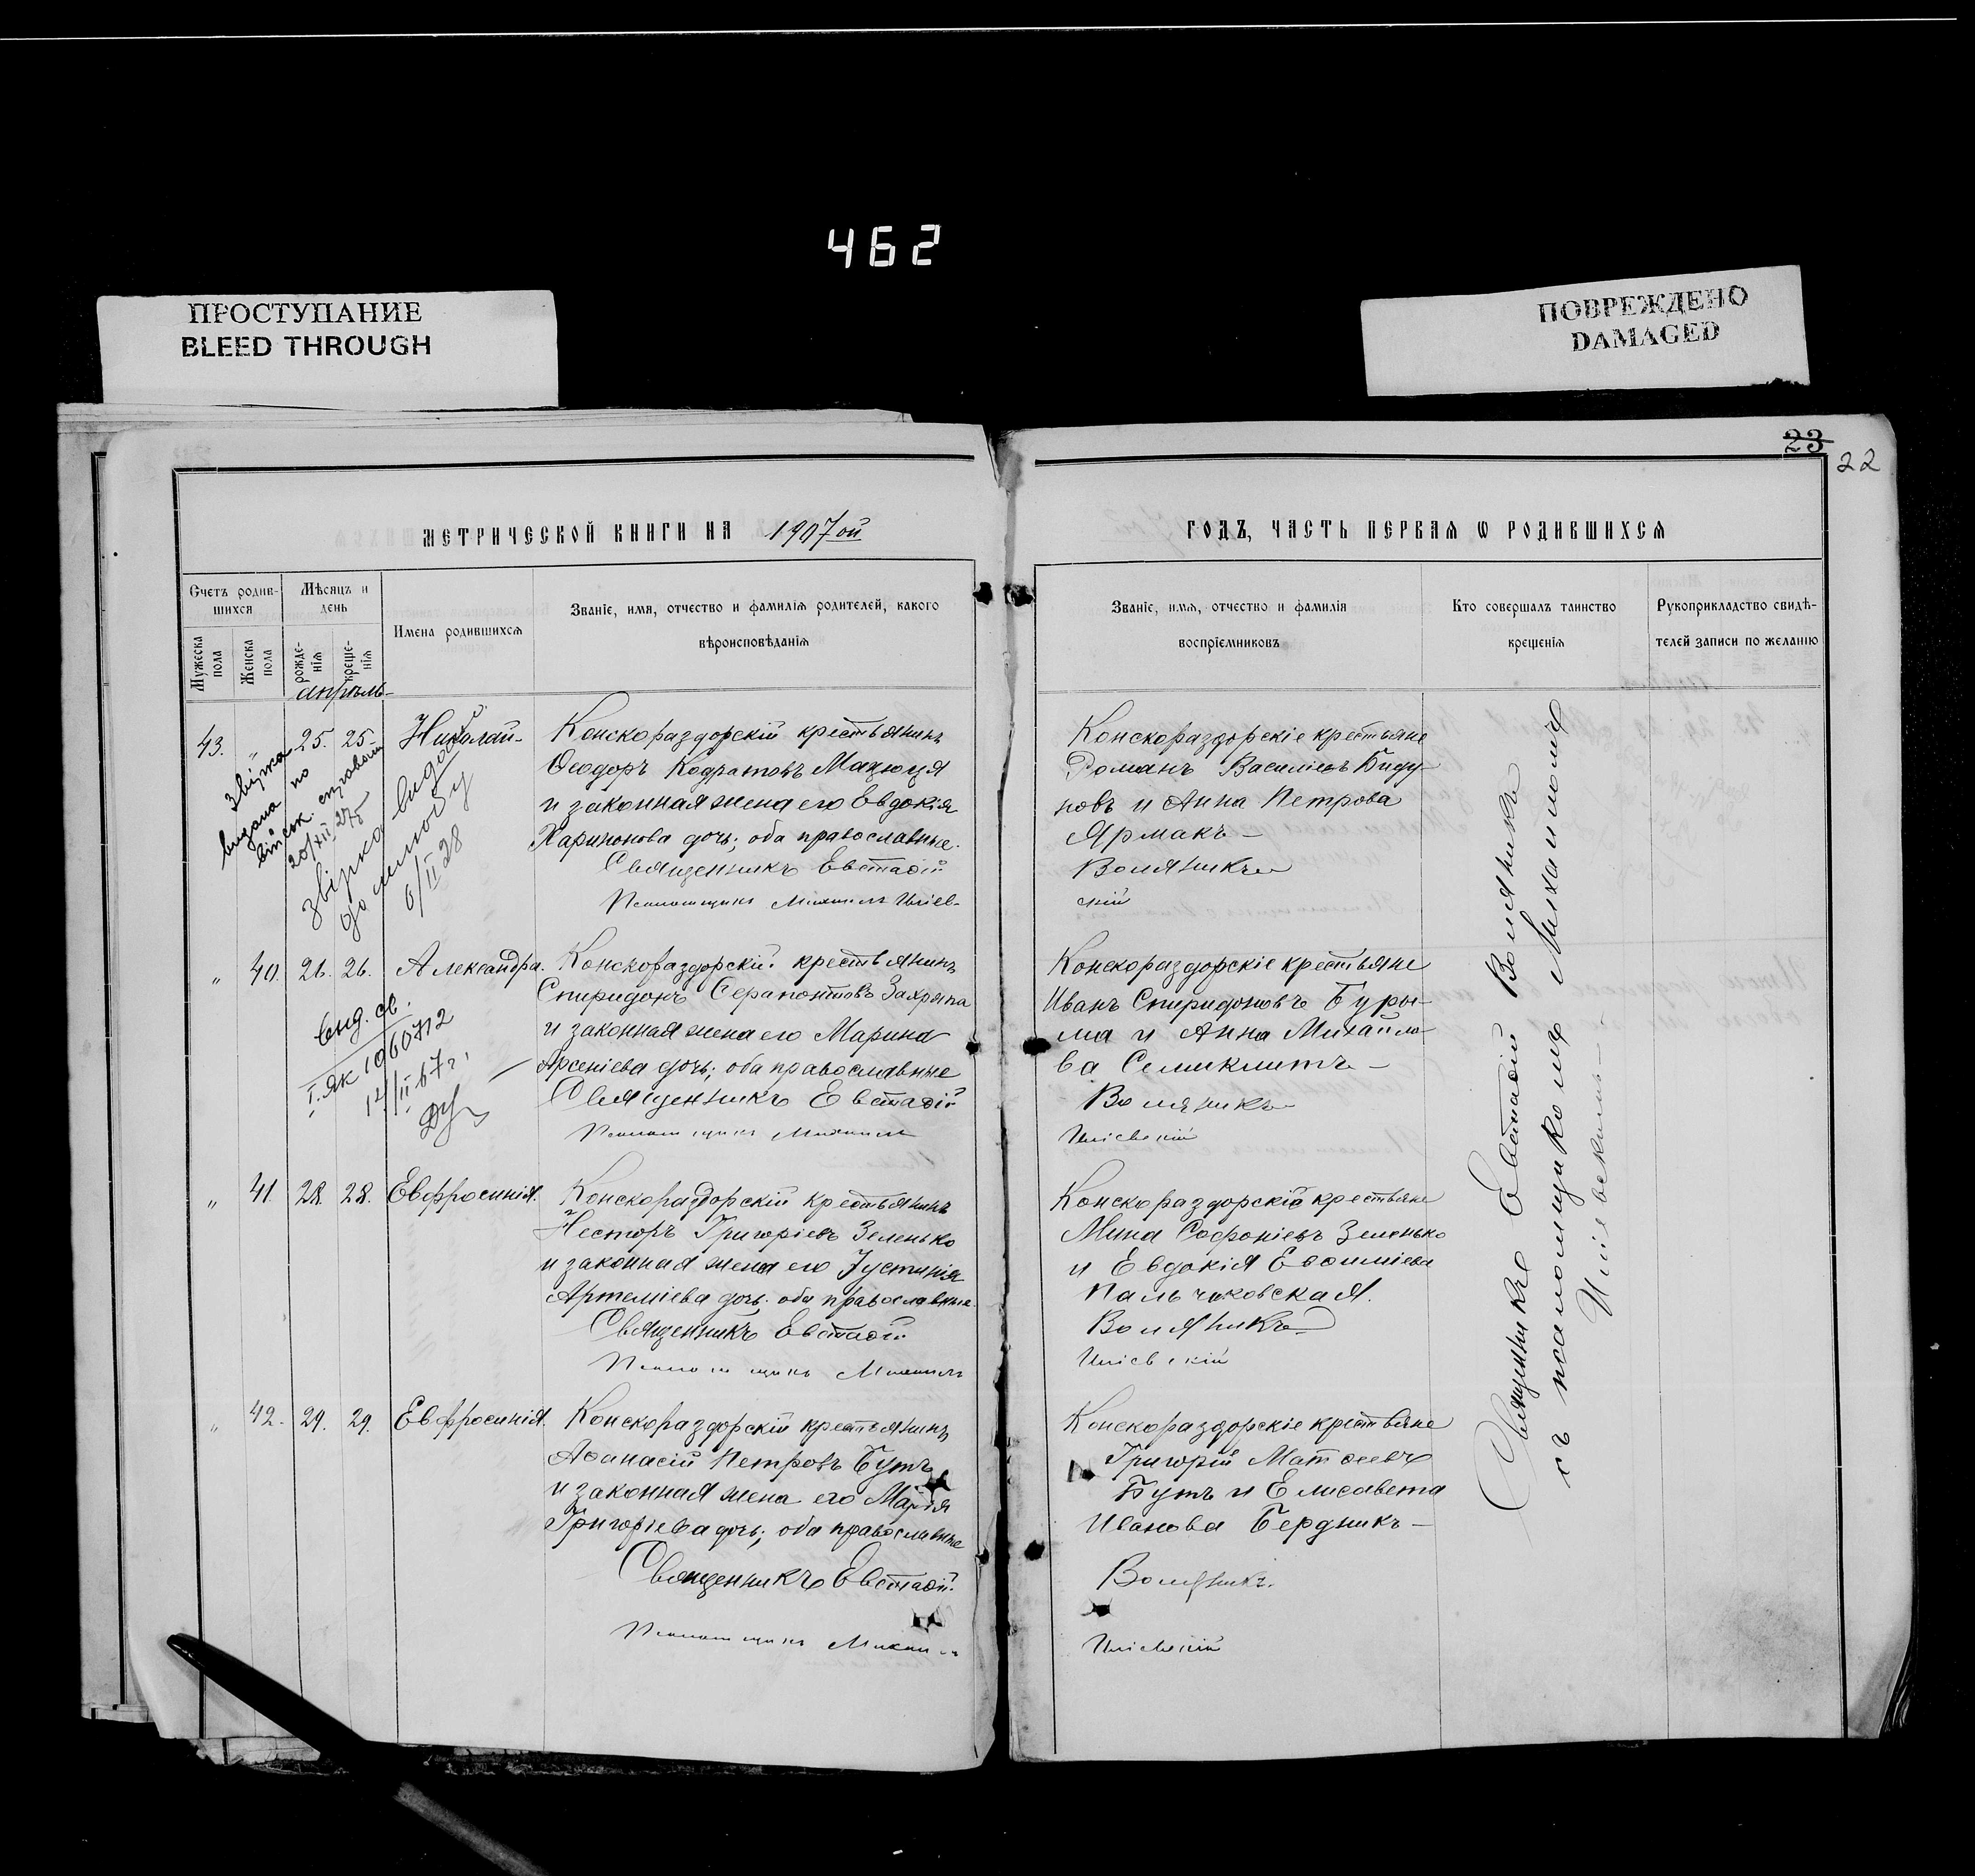 462
ПРОСТУПАНИЕ
BLEED THROUGH
ПОВРЕЖДЕНО
DAMAGED
23
22
МЕТРИЧЕСКОЙ КНИГИ НА 1907ой
Счетъ родив-
шихся
Мѣсяцъ и
день
Мужеска
пола
Женска
пола
рожде-
нія
креще-
нія
Имена родившихся
Званіе, имя, отчество и фамилія родителей, какого
вѣроисповѣданія
апрѣль
43. „ 25. 25. Николай
Конскораздорскій крестьянинъ
Ѳеодоръ Кодратовъ Мацюця
и законная жена его Евдокія
Харитонова дочь; оба православные.
Священникъ Евстаѳій
Псаломщикъ Михаилъ Иліев-
Звірка
видана по
війск. справам
20/XII 27
Звірка видана
до шлюбу
6/II 28
„ 40. 26. 26. Александра.
Конскораздорскій крестьянинъ
Спиридонъ Серапіоновъ Захряпа
и законная жена его Марина
Арсеніева дочь; оба православные
Священникъ Евстаѳій
Псаломщикъ Михаилъ
Выд. св.
I. ЯК 1060712
14/II 67 г.
„ 41. 28. 28. Евфросинія.
Конскораздорскій крестьянинъ
Несторъ Григоріевъ Зеленько
и законная жена его Іустинія
Артеміева дочь; оба православные.
Священникъ Евстаѳій
Псаломщикъ Михаилъ
„ 42. 29. 29. Евфросинія.
Конскораздорскій крестьянинъ
Аѳанасій Петровъ Бутъ
и законная жена его Марія
Григоріева дочь; оба православные
Священникъ Евстаѳій
Псаломщикъ Михаилъ
ГОДЪ, ЧАСТЬ ПЕРВАЯ Ѡ РОДИВШИХСЯ
Званіе, имя, отчество и фамилія
воспріемниковъ
Кто совершалъ таинство
крещенія
Рукоприкладство свидѣ-
телей записи по желанію
Конскораздорскіе крестьяне
Романъ Василіевъ Биду-
новъ и Анна Петрова
Ярмакъ –
Воляникъ
скій
Конскораздорскіе крестьяне
Иванъ Спиридоновъ Буры-
ма и Анна Михайло-
ва Семиклитъ –
Воляникъ
Иліевскій
Конскораздорскіе крестьяне
Мина Софоніевъ Зеленько
и Евдокія Евѳиміева
Пальчиковская.
Воляникъ
Иліевскій
Конскораздорскіе крестьяне
Григорій Матѳеевъ
Бутъ и Елисавета
Иванова Бердникъ –
Воляникъ.
Иліевскій
Священникъ Евстаѳій Воляникъ
съ псаломщикомъ Михаиломъ
Иліевскимъ –